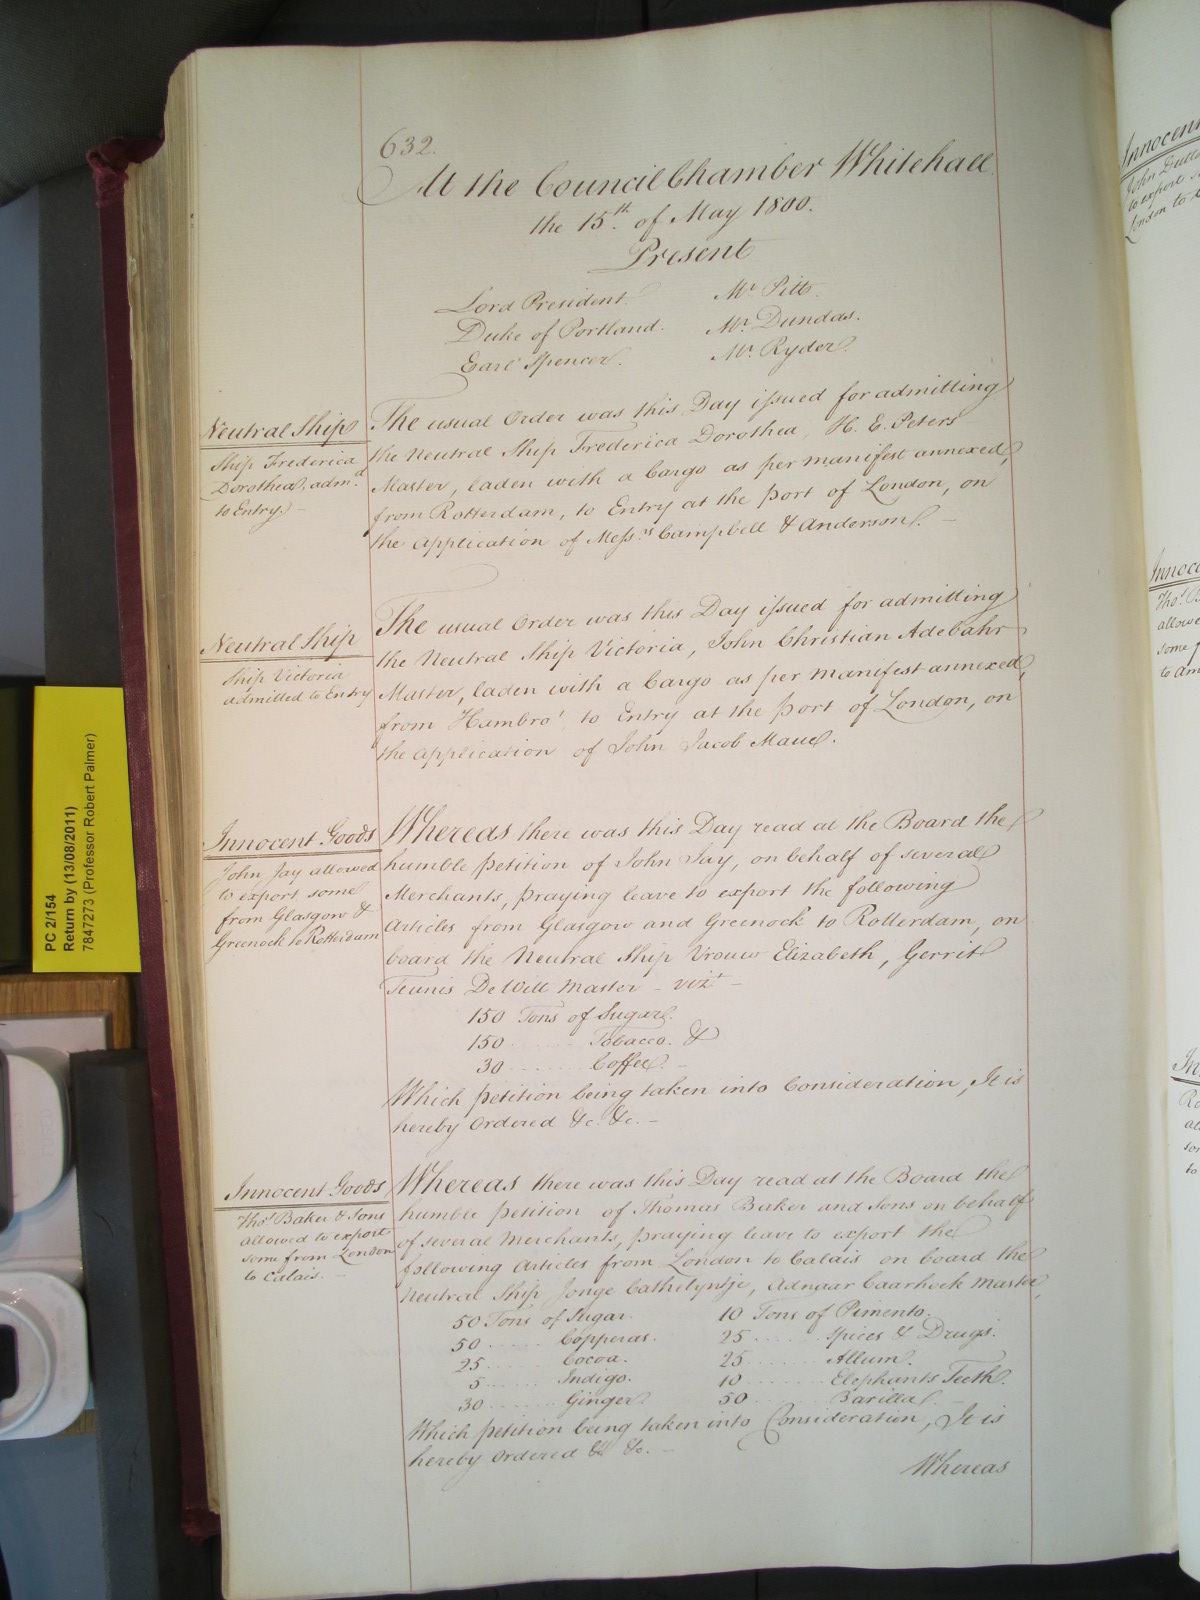 632.
At the Council Chamber Whitehall
the 15th. of May 1800.
Present
Lord President. Mr. Pitt.
Duke of Portland. Mr. Dundas.
Earl Spencer. Mr. Ryder.
Neutral Ship
Ship Frederica
Dorothea, adm.d
to Entry. -
The usual Order was this Day issued for admitting
the Neutral Ship Frederica Dorothea, H. E. Peters
Master, laden with a Cargo as per manifest annexed,
from Rotterdam, to Entry at the Port of London, on
the Application of Mess.rs Campbell & Anderson. -
Neutral Ship
Ship Victoria
admitted to Entry
The usual Order was this Day issued for admitting
the Neutral Ship Victoria, John Christian Adebahr
Master, laden with a Cargo as per manifest annexed,
from Hambro' to Entry at the Port of London, on
the Application of John Jacob Maue.
Innocent Goods
John Jay allowed
to export some
from Glasgow &
Greenock to Rotterdam
Whereas there was this Day read at the Board the
humble Petition of John Jay, on behalf of several
Merchants, praying leave to export the following
Articles from Glasgow and Greenock to Rotterdam, on
board the Neutral Ship Vrouw Elizabeth, Gerrit
Teunis DeWill Master - vizt. -
150 Tons of Sugar.
150 ........ Tobacco. &
30 ........ Coffee. -
Which Petition being taken into Consideration, It is
hereby Ordered &c. &c. -
Innocent Goods
Thos. Baker & Sons
allowed to export
some from London
to Calais. -
Whereas there was this Day read at the Board the
humble Petition of Thomas Baker and Sons on behalf
of several Merchants, praying leave to export the
following Articles from London to Calais on board the
Neutral Ship Jonge Cathelyntje, Adnaar Caarhoek Master,
50 Tons of Sugar. 10 Tons of Pimento.
50 ...... Copperas. 25 ...... Spices & Drugs.
25 ...... Cocoa. 25 ...... Allum.
5 ...... Indigo. 10 ...... Elephants Teeth.
30 ...... Ginger 50 ...... Barilla. -
Which Petition being taken into Consideration, It is
hereby Ordered &c &c. -
Whereas
PC 2/154
Return by (13/08/2011)
7847273 (Professor Robert Palmer)
Innocent
to export
London to
allowe
some
to Am